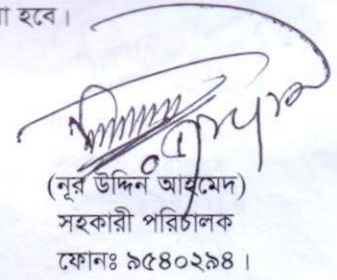 া হবে।
(নূর উদ্দিন আহমেদ)
সহকারী পরিচালক
ফোনঃ ৯৫৪০২৯৪।